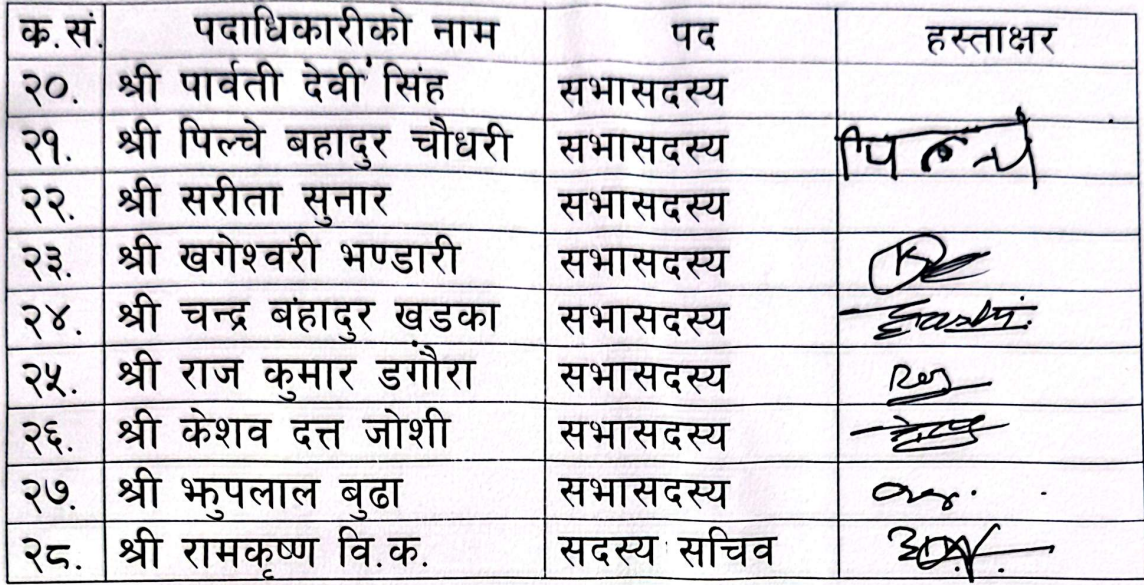 क.सं. पदाधिकारीको नाम पद हस्ताक्षर
२०. श्री पार्वती देवी सिंह सभासदस्य
२१. श्री पिल्चे बहादुर चौधरी सभासदस्य पिल्चे
२२. श्री सरीता सुनार सभासदस्य
२३. श्री खगेश्वरी भण्डारी सभासदस्य
२४. श्री चन्द्र बहादुर खडका सभासदस्य
२५. श्री राज कुमार डगौरा सभासदस्य
२६. श्री केशव दत्त जोशी सभासदस्य
२७. श्री झुपलाल बुढा सभासदस्य
२८. श्री रामकृष्ण वि.क. सदस्य सचिव